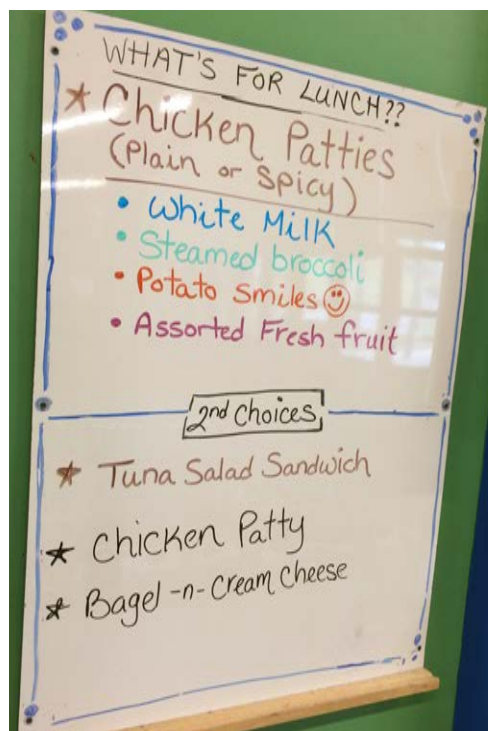 WHAT'S FOR LUNCH??
* Chicken Patties
(Plain or Spicy)
• White Milk
• Steamed broccoli
• Potato Smiles ☺
• Assorted Fresh fruit
2nd Choices
* Tuna Salad Sandwich
* Chicken Patty
* Bagel -n- Cream Cheese